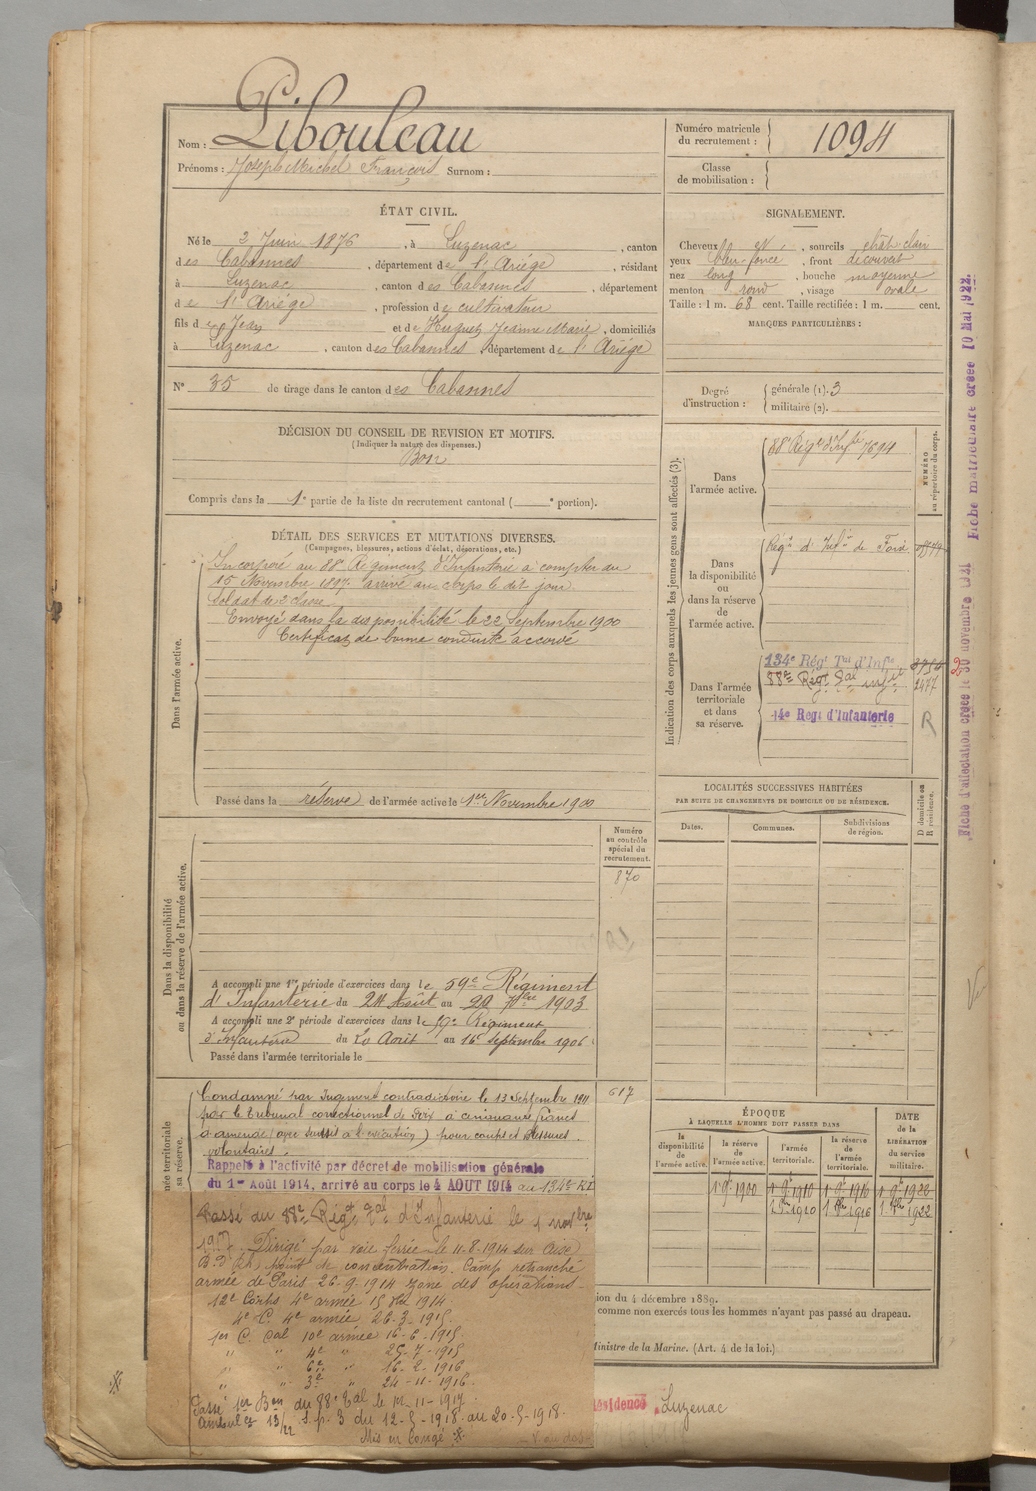 Nom : Pibouleau
Prénoms : Joseph Michel François Surnom :
Numéro matricule du recrutement : 1094
Classe de mobilisation :
ÉTAT CIVIL.
Né le 2 Juin 1876, à Luzenac, canton
des Cabannes, département de l'Ariége, résidant
à Luzenac, canton des Cabannes, département
de l'Ariége, profession de cultivateur
fils de Jean et de Huguet Jeanne Marie, domiciliés
à Luzenac, canton des Cabannes, département de l'Ariége
N° 35 de tirage dans le canton des Cabannes
SIGNALEMENT.
Cheveux , sourcils chât clair
yeux bleu foncé, front découvert
nez long, bouche moyenne
menton rond, visage ovale
Taille : 1 m. 68 cent. Taille rectifiée : 1 m. cent.
MARQUES PARTICULIÈRES :
Degré d'instruction : générale (1). 3
militaire (2).
DÉCISION DU CONSEIL DE REVISION ET MOTIFS.
(Indiquer la nature des dispenses.)
Bon
Compris dans la 1e partie de la liste du recrutement cantonal ( e portion).
DÉTAIL DES SERVICES ET MUTATIONS DIVERSES.
(Campagnes, blessures, actions d'éclat, décorations, etc.)
Dans l'armée active.
Incorporé au 88e Régiment d'Infanterie à compter du
15 Novembre 1897 arrivé au corps le dit jour
Soldat de 2e classe
Envoyé dans la disponibilité le 22 Septembre 1900
Certificat de bonne conduite accordé
Passé dans la réserve de l'armée active le 1er Novembre 1900
Indication des corps auxquels les jeunes gens sont affectés (3).
NUMÉRO au répertoire du corps.
Dans l'armée active.
88e Régt d'Infie 7694
Dans la disponibilité ou dans la réserve de l'armée active.
Régt d'Infie de Foix
Dans l'armée territoriale et dans sa réserve.
134e Régt Tal d'Infie
88e Régt Tal infie 2477
14e Régt d'Infanterie R
LOCALITÉS SUCCESSIVES HABITÉES
PAR SUITE DE CHANGEMENTS DE DOMICILE OU DE RÉSIDENCE.
D domicile ou R résidence.
Dates. Communes. Subdivisions de région.
Dans la disponibilité ou dans la réserve de l'armée active.
Numéro au contrôle spécial du recrutement.
870
A accompli une 1re période d'exercices dans le 59e Régiment
d'Infanterie du 24 Août au 20 7bre 1903
A accompli une 2e période d'exercices dans le 59e Régiment
d'Infanterie du 20 Août au 16 Septembre 1906
Passé dans l'armée territoriale le
617
Condamné par Jugement contradictoire le 13 Septembre 1911
par le Tribunal correctionnel de Foix à cinquante francs
d'amende (avec sursis à l'exécution) pour coups et blessures
volontaires.
Rappelé à l'activité par décret de mobilisation générale
du 1er Août 1914, arrivé au corps le 4 AOUT 1914 au 134e RI
Passé au 88e Régt Tal d'Infanterie le 1 novbre
1917. Dirigé par voie ferrée le 11-8-1914 sur Oise
point de concentration. Camp retranché
armée de Paris 26-9-1914 zone des opérations
12e Corps 4e armée 15 1914
4e C. 4e armée 26-3-1915
1er C. Cal 10e armée 16-6-1915
" " 4e " 25-7-1915
" " 6e " 16-2-1916
" " 3e " 24-11-1916
Passé 1er Bon du 88e Tal le 11-11-1917
S.p. 3 du 12-5-1918 au 20-5-1918
Mis en Congé
V. au dos
ÉPOQUE
À LAQUELLE L'HOMME DOIT PASSER DANS
la disponibilité de l'armée active.
la réserve de l'armée active.
l'armée territoriale.
la réserve de l'armée territoriale.
DATE de la LIBÉRATION du service militaire.
1 9e 1900 1 9e 1910 1 9e 1916 1 9e 1922
1 8re 1910 1 8re 1916 1 8re 1922
ion du 4 décembre 1889.
comme non exercés tous les hommes n'ayant pas passé au drapeau.
Ministre de la Marine. (Art. 4 de la loi.)
résidence Luzenac
Fiche d'affectation créée le 30 novembre 1921 Fiche matriculaire créée 10 Mai 1922.